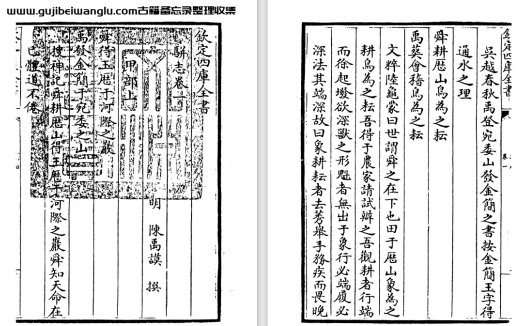 www.gujibeiwanglu.com古籍备忘录整理收集
欽定四庫全書
駢志卷一
明 陳禹謨 撰
甲部上
舜得玉厯于河際之巖
禹發金簡于宛委之山
搜神記舜耕厯山得玉厯于河際之巖舜知天命在
己體道不倦
欽定四庫全書
吳越春秋禹登宛委山發金簡之書按金簡玉字得
通水之理
舜耕厯山象為之耕
禹葬會稽鳥為之耘
文粹陸龜蒙曰世謂舜之在下也田于厯山象為之
耕鳥為之耘吾得于農家請試辨之吾觀耕者行端
而徐起墢欲深獸之形魁者無出于象行必端履必
深法其端深故曰象耕耘者去莠舉手務疾而畏晚